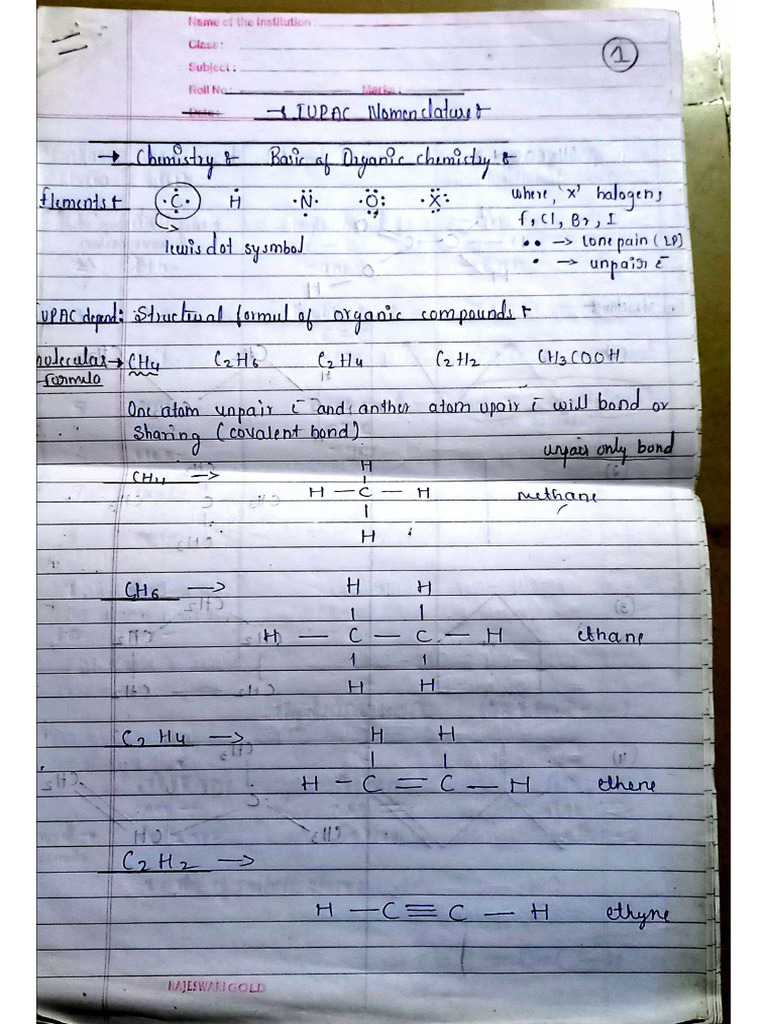 Name of the Institution :
Class :
Subject :
Roll No : Marks :
Date :
1
→ IUPAC Nomenclature
→ Chemistry Basic of Organic chemistry
Elements ·C· H ·N· :O: ·X: where, 'x' halogens
f, Cl, Br, I
lewis dot sysmbol •• → lone pain (LP)
• → unpair e̅
IUPAC depend: Structural formul of organic compounds
molecular → CH4 C2H6 C2H4 C2H2 CH3COOH
formulo
One atom unpair e̅ and anther atom upair e̅ will bond or
sharing (covalent bond)
unpair only bond
H
CH4 → H — C — H methane
H
CH6 → H H
H — C — C — H ethane
H H
C2H4 → H H
H — C = C — H ethene
C2H2 →
H — C ≡ C — H ethyne
RAJESWARI GOLD